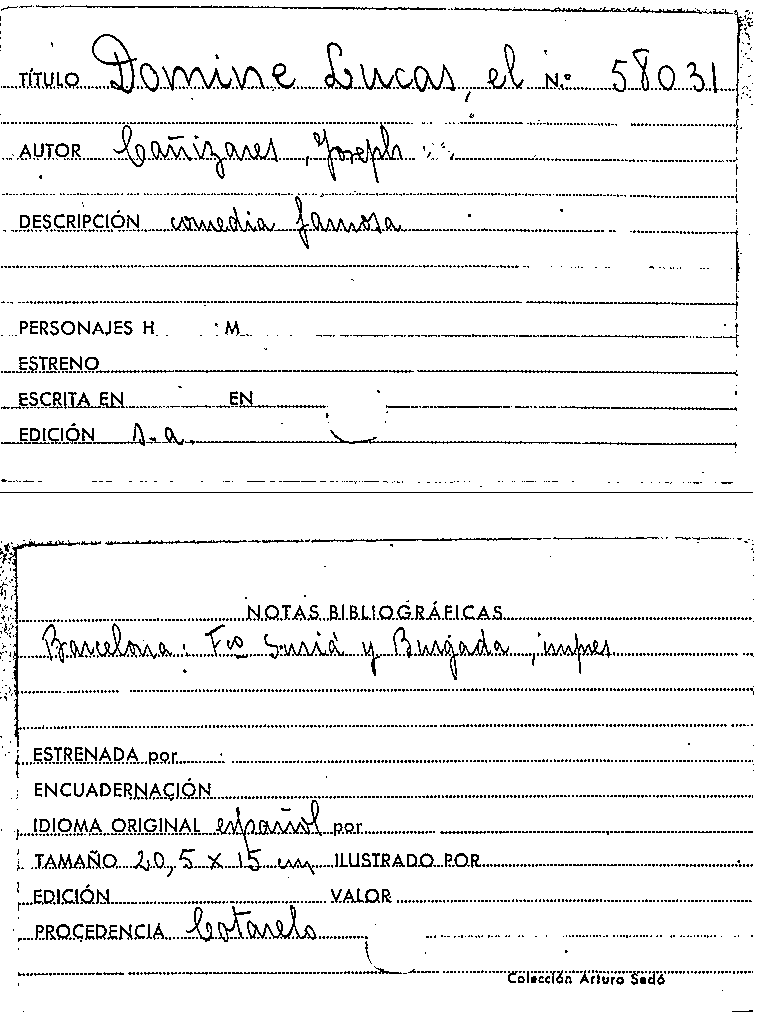 TÍTULO Domine Lucas, el N.º 58031
AUTOR Cañizares, Joseph
DESCRIPCIÓN comedia famosa
PERSONAJES H M
ESTRENO
ESCRITA EN EN
EDICIÓN s.a.
NOTAS BIBLIOGRÁFICAS
Barcelona: Fco Suriá y Burgada, impres
ESTRENADA por
ENCUADERNACIÓN
IDIOMA ORIGINAL español por
TAMAÑO 20,5 x 15 cm ILUSTRADO POR
EDICIÓN VALOR
PROCEDENCIA Cotarelo
Colección Arturo Sedó